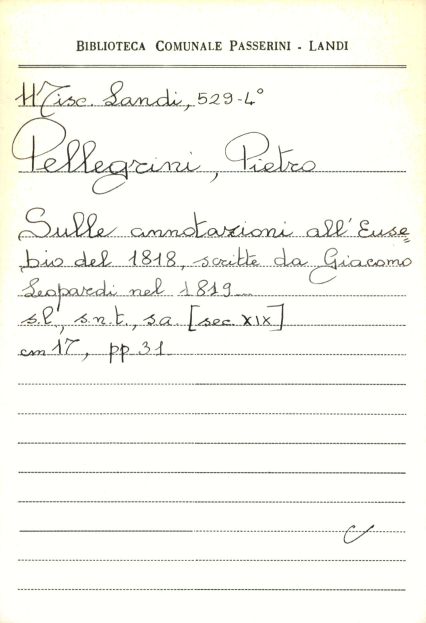 BIBLIOTECA COMUNALE PASSERINI - LANDI
Misc. Landi, 529-4°
Pellegrini, Pietro
Sulle annotazioni all'Euse=
bio del 1818, scritte da Giacomo
Leopardi nel 1819
s.l., s.n.t., s.a. [sec. XIX]
cm 17, pp 31